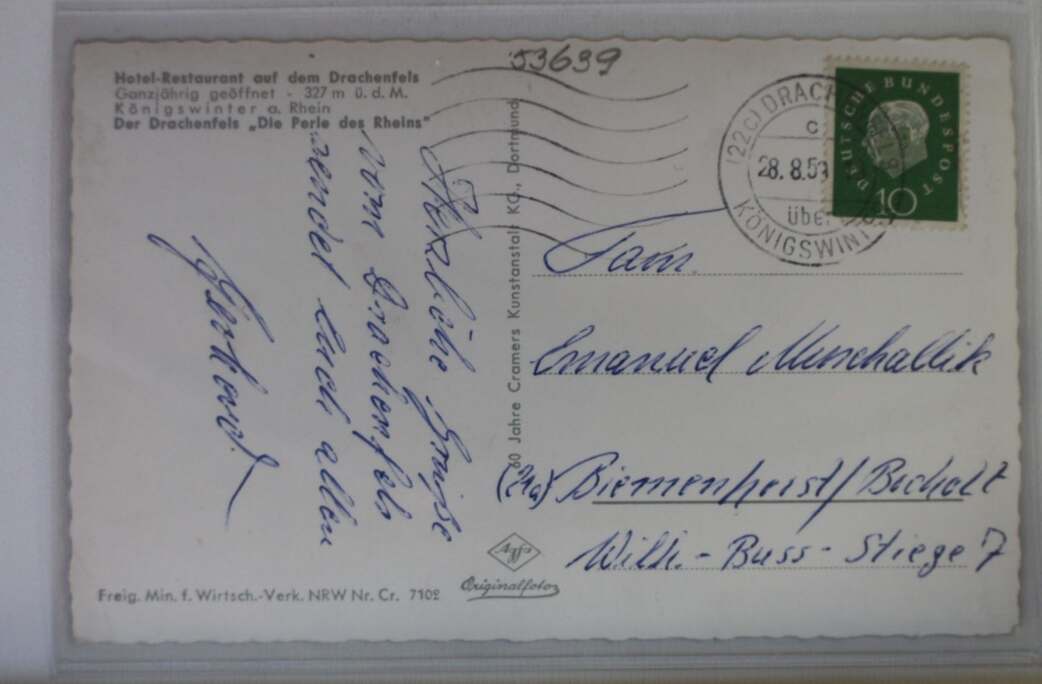 53639
Hotel-Restaurant auf dem Drachenfels
Ganzjährig geöffnet - 327 m ü. d. M.
Königswinter a. Rhein
Der Drachenfels „Die Perle des Rheins"
Herzliche Grüsse
vom Drachenfels
sendet Euch allen
Gerhard.
60 Jahre Cramers Kunstanstalt KG., Dortmund
(22c) DRACH
c
28.8.59
über
KÖNIGSWINT
DEUTSCHE BUNDESPOST
10
Fam.
Emanuel Muschallik
(21a) Biemenhorst/Bocholt
Wilh.-Buss-Stiege 7
Agfa
Originalfoto
Freig. Min. f. Wirtsch.-Verk. NRW Nr. Cr. 7102